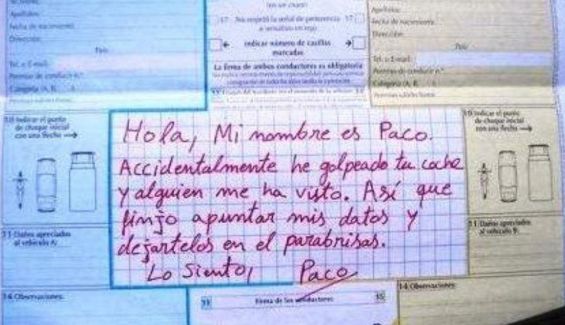 Apellidos:
Fecha de nacimiento:
Dirección:
País:
Tel. o E-mail:
Permiso de conducir n.º
Categoría (A, B, ...)
17 No respetó la señal de preferencia 17
o semáforo en rojo
indicar número de casillas
marcadas
La firma de ambos conductores es obligatoria
Apellidos:
Fecha de nacimiento:
Dirección:
País:
Tel. o E-mail:
Permiso de conducir n.º
Categoría (A, B, ...)
10 Indicar el punto
de choque inicial
con una flecha
10 Indicar el punto
de choque inicial
con una flecha
Hola, Mi nombre es Paco.
Accidentalmente he golpeado tu coche
y alguien me ha visto. Así que
finjo apuntar mis datos y
dejartelos en el parabrisas.
Lo siento, Paco
11 Daños apreciados
al vehículo A:
11 Daños apreciados
al vehículo B:
14 Observaciones:
14 Observaciones:
15 Firma de los conductores 15